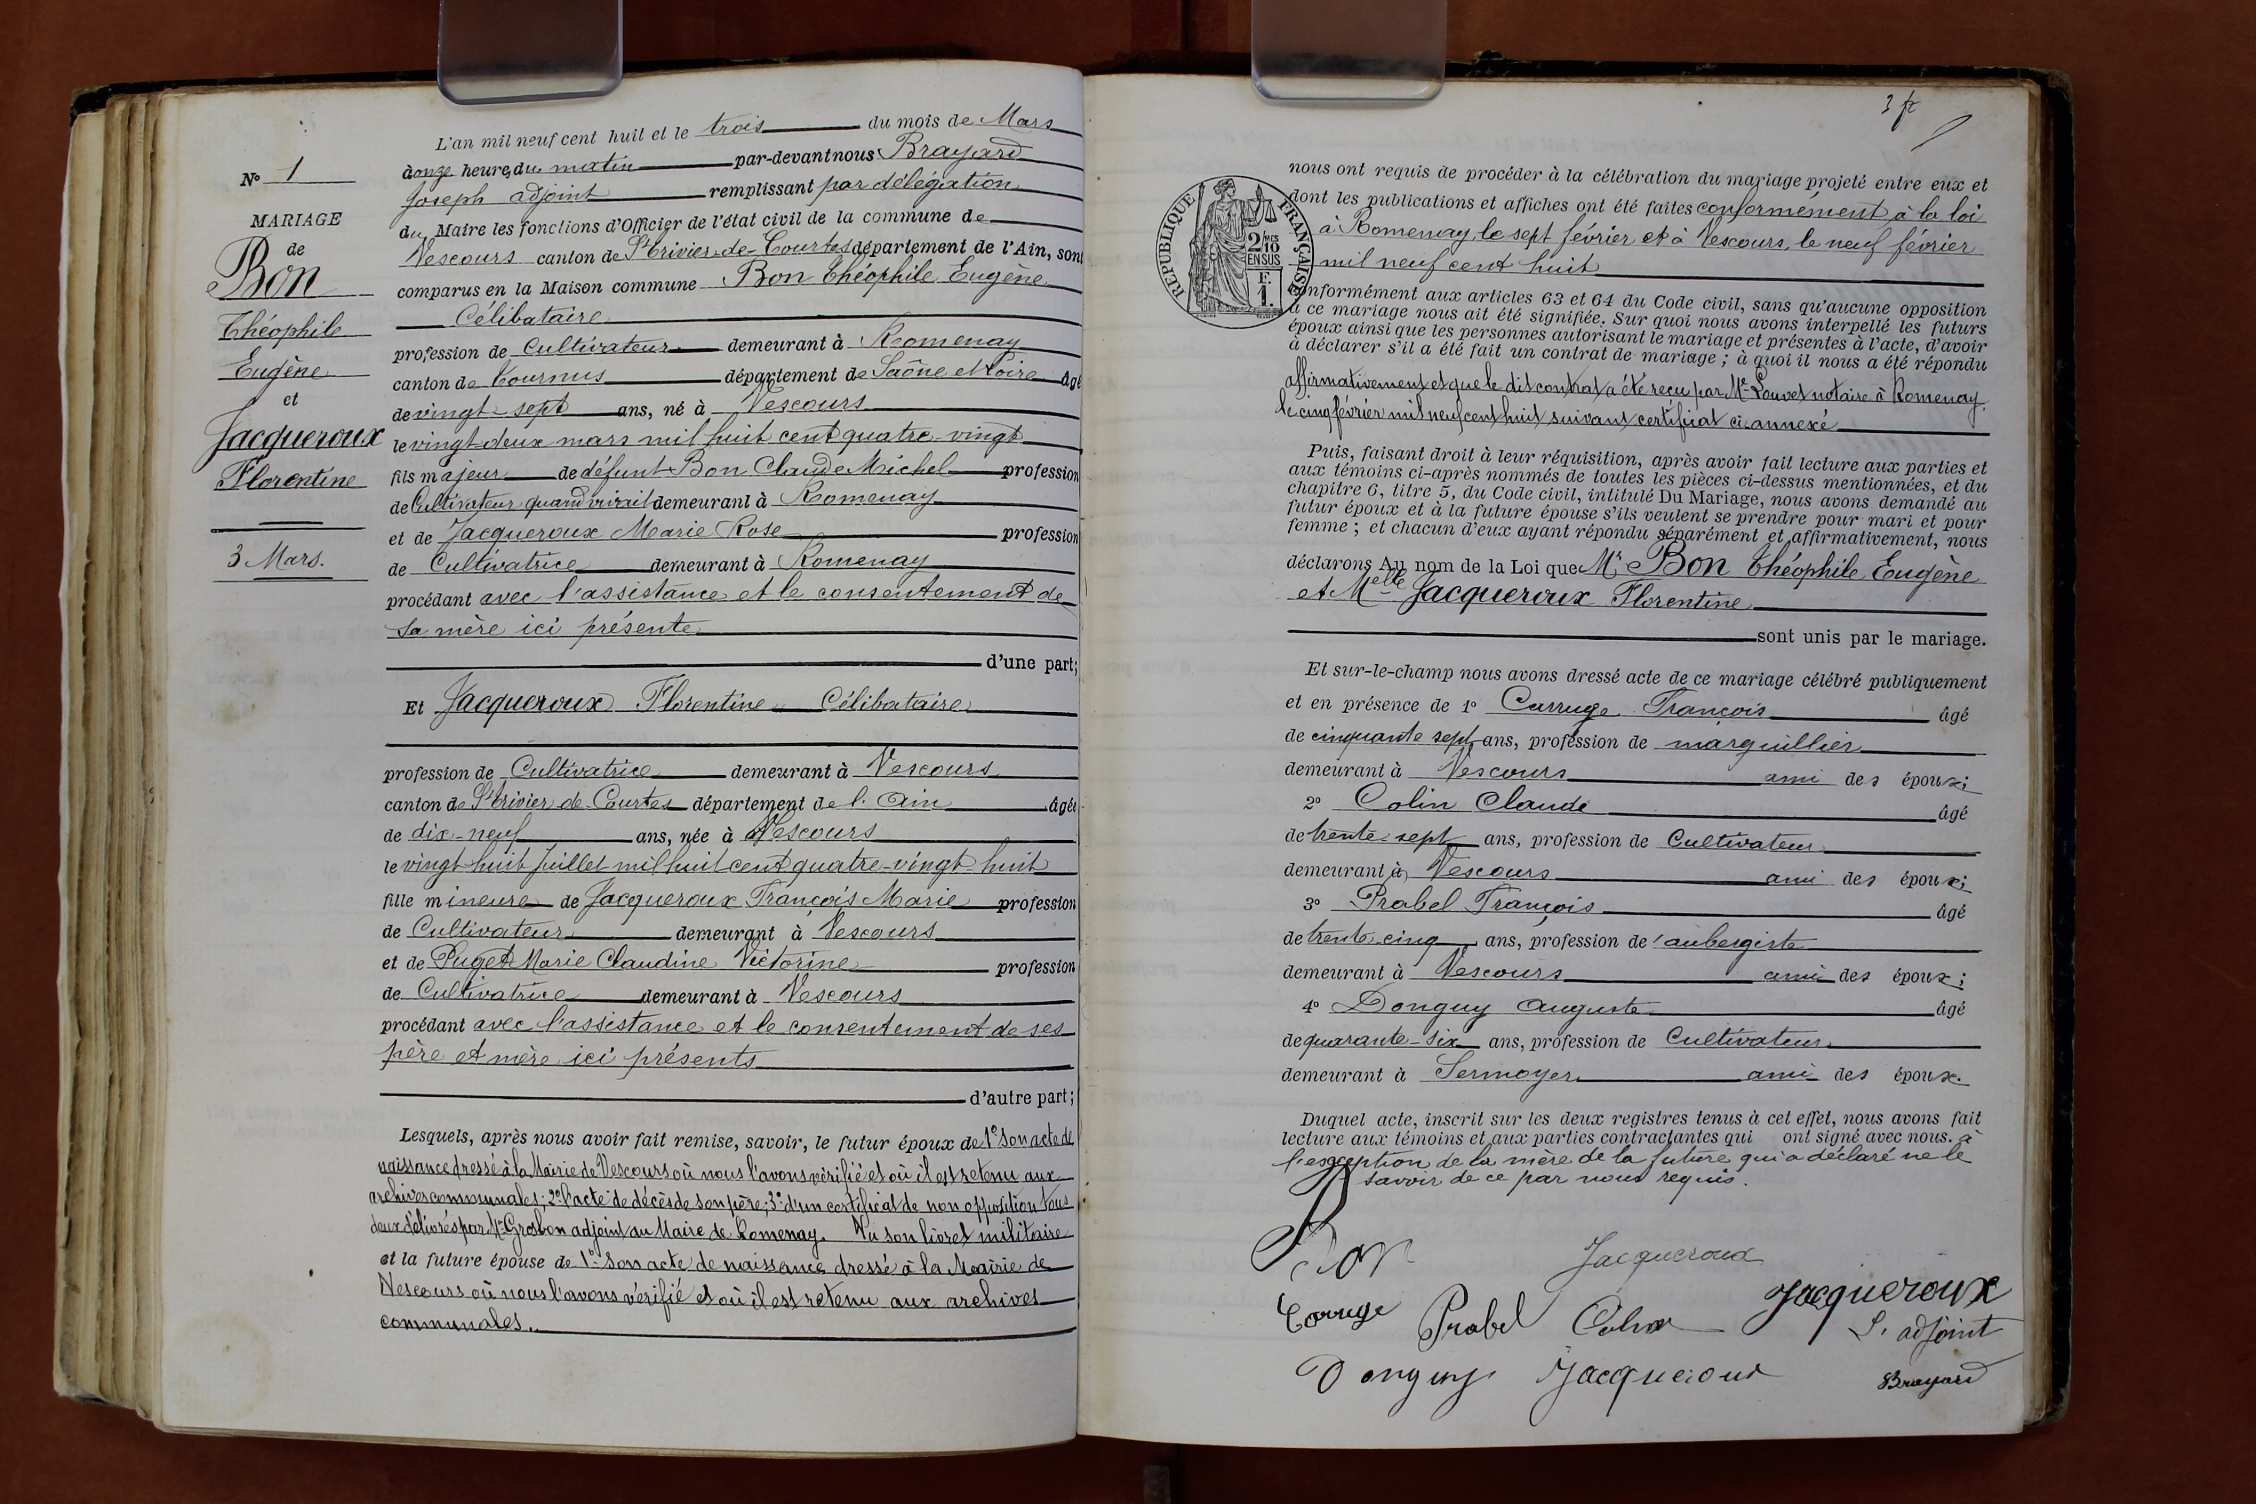 N° 1
MARIAGE
de
Bon
Théophile
Eugène
et
Jacqueroux
Florentine
3 Mars.
L'an mil neuf cent huit et le trois du mois de Mars
à onze heures du matin par-devant nous Brayard
Joseph adjoint remplissant par délégation
du Maire les fonctions d'Officier de l'état civil de la commune de
Vescours canton de St Trivier-de-Courtes département de l'Ain, sont
comparus en la Maison commune Bon Théophile Eugène
Célibataire
profession de Cultivateur demeurant à Romenay
canton de Tournus département de Saône et Loire âgé
de vingt-sept ans, né à Vescours
le vingt-deux mars mil huit cent quatre-vingt
fils majeur de défunt Bon Claude Michel profession
de Cultivateur quand vivait demeurant à Romenay
et de Jacqueroux Marie Rose profession
de Cultivatrice demeurant à Romenay
procédant avec l'assistance et le consentement de
sa mère ici présente
d'une part;
Et Jacqueroux Florentine Célibataire
profession de Cultivatrice demeurant à Vescours
canton de St Trivier-de-Courtes département de l'Ain âgée
de dix-neuf ans, née à Vescours
le vingt-huit Juillet mil huit cent quatre-vingt-huit
fille mineure de Jacqueroux François Marie profession
de Cultivateur demeurant à Vescours
et de Puget Marie Claudine Victorine profession
de Cultivatrice demeurant à Vescours
procédant avec l'assistance et le consentement de ses
père et mère ici présents
d'autre part;
Lesquels, après nous avoir fait remise, savoir, le futur époux de 1° Son acte de
naissance dressé à la Mairie de Vescours où nous l'avons vérifié et où il est retenu aux
archives communales; 2° l'acte de décès de son père; 3° d'un certificat de non opposition tous
deux délivrés par Mr Grosbon adjoint au Maire de Romenay. Vu son livret militaire
et la future épouse de 1° Son acte de naissance dressé à la Mairie de
Vescours où nous l'avons vérifié et où il est retenu aux archives
communales.
3 fc
nous ont requis de procéder à la célébration du mariage projeté entre eux et
dont les publications et affiches ont été faites conformément à la loi
à Romenay le sept février et à Vescours le neuf février
mil neuf cent huit
RÉPUBLIQUE FRANÇAISE
2/10 MES
EN SUS
F.
1.
conformément aux articles 63 et 64 du Code civil, sans qu'aucune opposition
à ce mariage nous ait été signifiée. Sur quoi nous avons interpellé les futurs
époux ainsi que les personnes autorisant le mariage et présentes à l'acte, d'avoir
à déclarer s'il a été fait un contrat de mariage; à quoi il nous a été répondu
affirmativement et que le dit contrat a été reçu par Me Louvet notaire à Romenay.
le cinq février mil neuf cent huit suivant certificat ci annexé
Puis, faisant droit à leur réquisition, après avoir fait lecture aux parties et
aux témoins ci-après nommés de toutes les pièces ci-dessus mentionnées, et du
chapitre 6, titre 5, du Code civil, intitulé Du Mariage, nous avons demandé au
futur époux et à la future épouse s'ils veulent se prendre pour mari et pour
femme; et chacun d'eux ayant répondu séparément et affirmativement, nous
déclarons Au nom de la Loi que Mr Bon Théophile Eugène
et Melle Jacqueroux Florentine
sont unis par le mariage.
Et sur-le-champ nous avons dressé acte de ce mariage célébré publiquement
et en présence de 1° Carruge François âgé
de cinquante sept ans, profession de marguillier
demeurant à Vescours ami des époux;
2° Colin Claude âgé
de trente-sept ans, profession de Cultivateur
demeurant à Vescours ami des époux;
3° Prabel François âgé
de trente-cinq ans, profession d'aubergiste
demeurant à Vescours ami des époux;
4° Donguy Auguste âgé
de quarante-six ans, profession de Cultivateur
demeurant à Sermoyer ami des époux.
Duquel acte, inscrit sur les deux registres tenus à cet effet, nous avons fait
lecture aux témoins et aux parties contractantes qui ont signé avec nous. à
l'exception de la mère de la future qui a déclaré ne le
savoir de ce par nous requis.
Bon
Jacqueroux
Carruge Prabel Colin Jacqueroux
L'adjoint
Donguy Jacqueroux Brayard